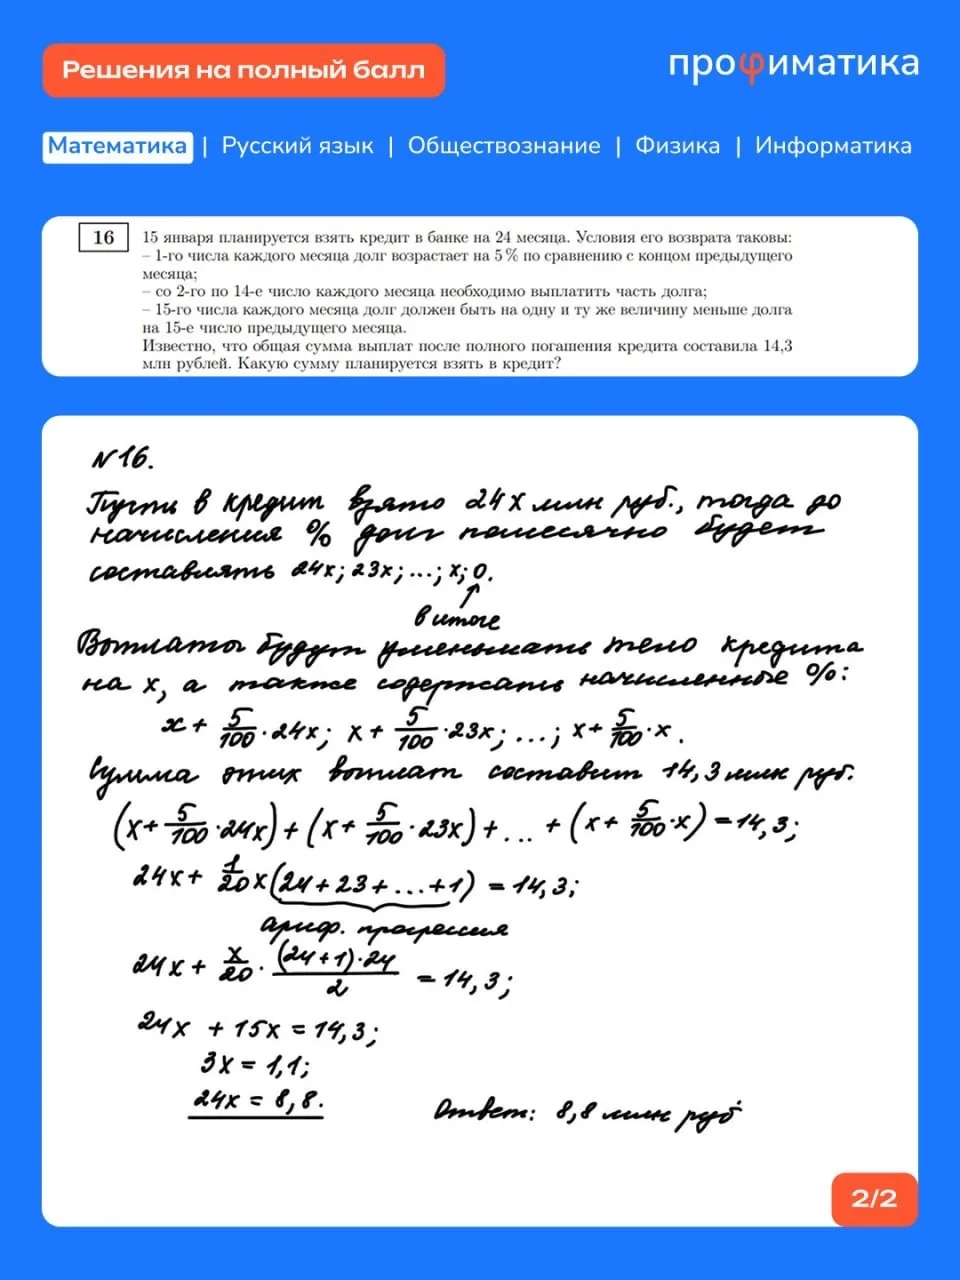 Решения на полный балл
профиматика
Математика | Русский язык | Обществознание | Физика | Информатика
16
15 января планируется взять кредит в банке на 24 месяца. Условия его возврата таковы:
– 1-го числа каждого месяца долг возрастает на 5 % по сравнению с концом предыдущего
месяца;
– со 2-го по 14-е число каждого месяца необходимо выплатить часть долга;
– 15-го числа каждого месяца долг должен быть на одну и ту же величину меньше долга
на 15-е число предыдущего месяца.
Известно, что общая сумма выплат после полного погашения кредита составила 14,3
млн рублей. Какую сумму планируется взять в кредит?
N16.
Пусть в кредит взято 24x млн руб., тогда до
начисления % долг помесячно будет
составлять 24x; 23x; ...; x; 0.
в итоге
Выплаты будут уменьшать тело кредита
на x, а также содержать начисленные %:
x + 5/100 · 24x; x + 5/100 · 23x; ...; x + 5/100 · x.
Сумма этих выплат составит 14,3 млн руб.
(x + 5/100 · 24x) + (x + 5/100 · 23x) + ... + (x + 5/100 · x) = 14,3;
24x + 1/20 x (24 + 23 + ... + 1) = 14,3;
ариф. прогрессия
24x + x/20 · (24+1)·24/2 = 14,3;
24x + 15x = 14,3;
3x = 1,1;
24x = 8,8.
Ответ: 8,8 млн руб
2/2